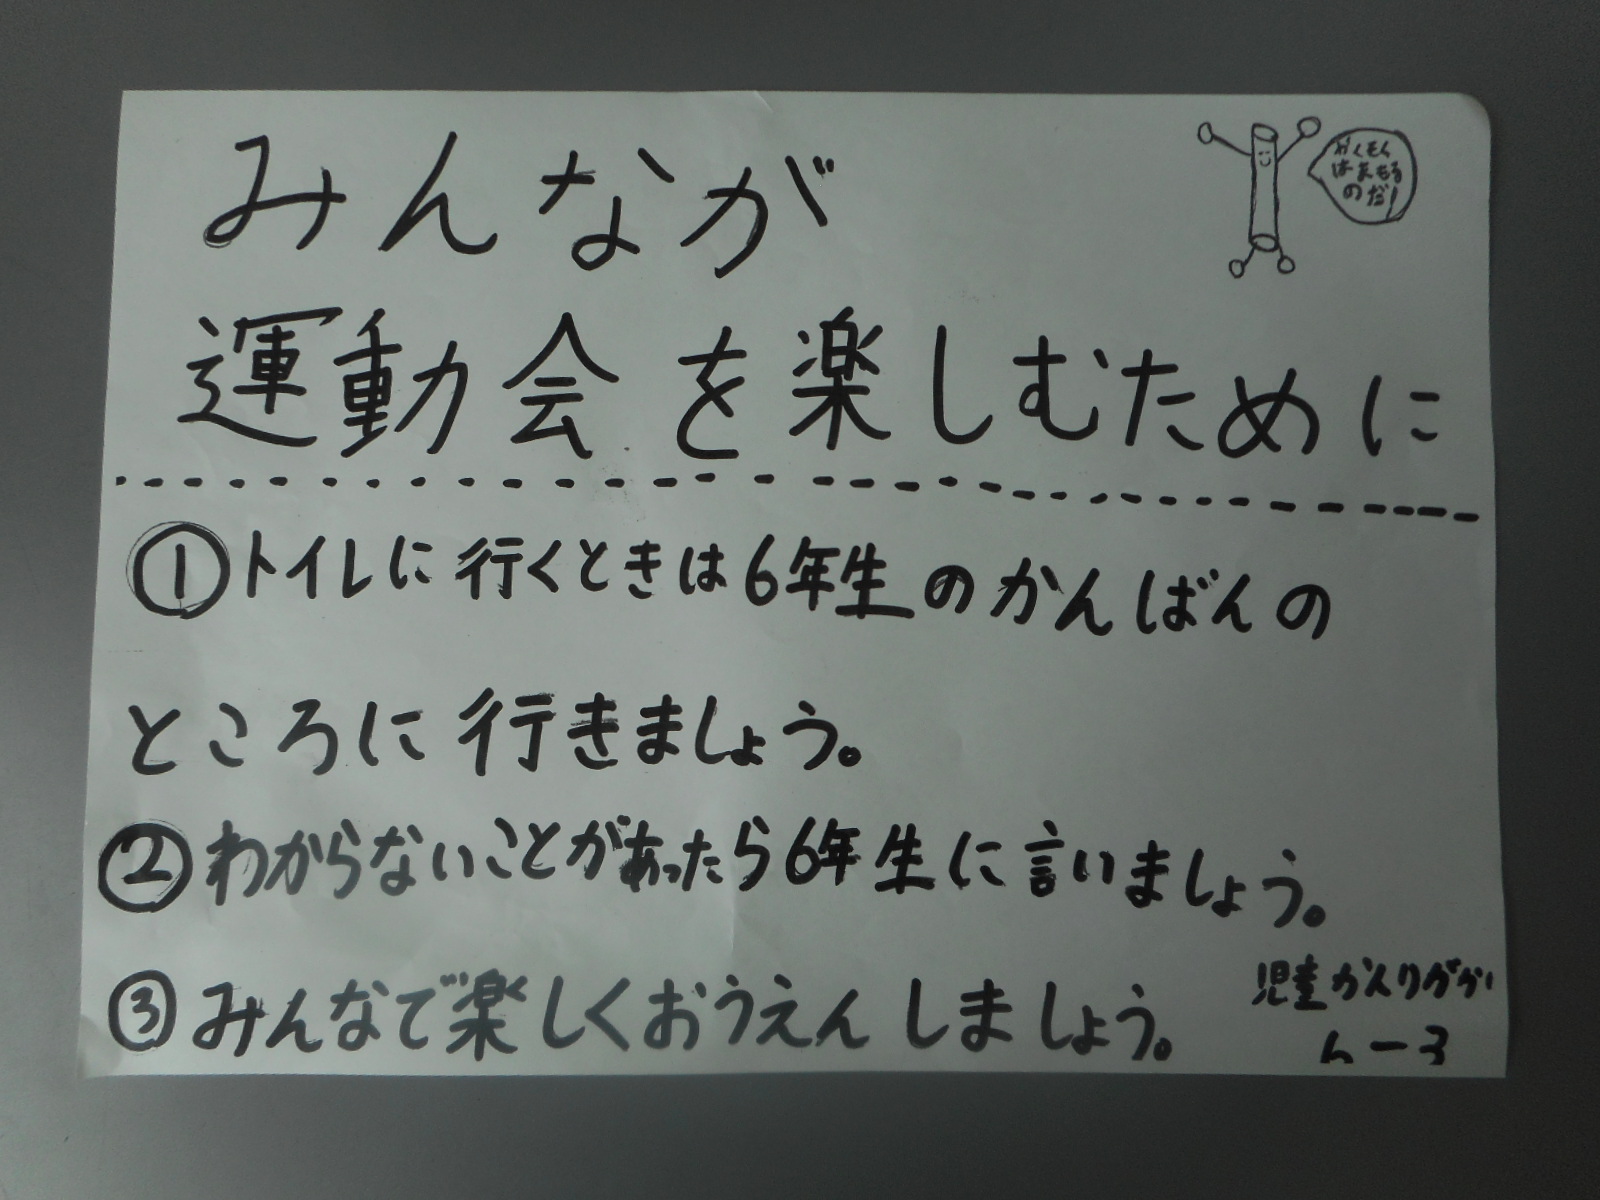 みんなが
運動会を楽しむために
やくそく
はまもる
のだ!
①トイレに行くときは6年生のかんばんの
ところに行きましょう。
②わからないことがあったら6年生に言いましょう。
③みんなで楽しくおうえんしましょう。
児童かんりがかり